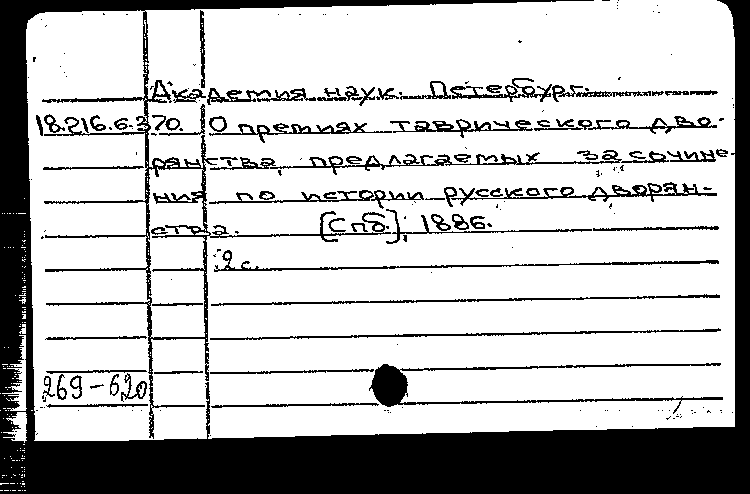 Академия наук. Петербург.
18.216.6.370. О премиях таврического дво-
рянства, предлагаемых за сочине-
ния по истории русского дворян-
ства. [Спб.], 1886.
2 с.
269-620